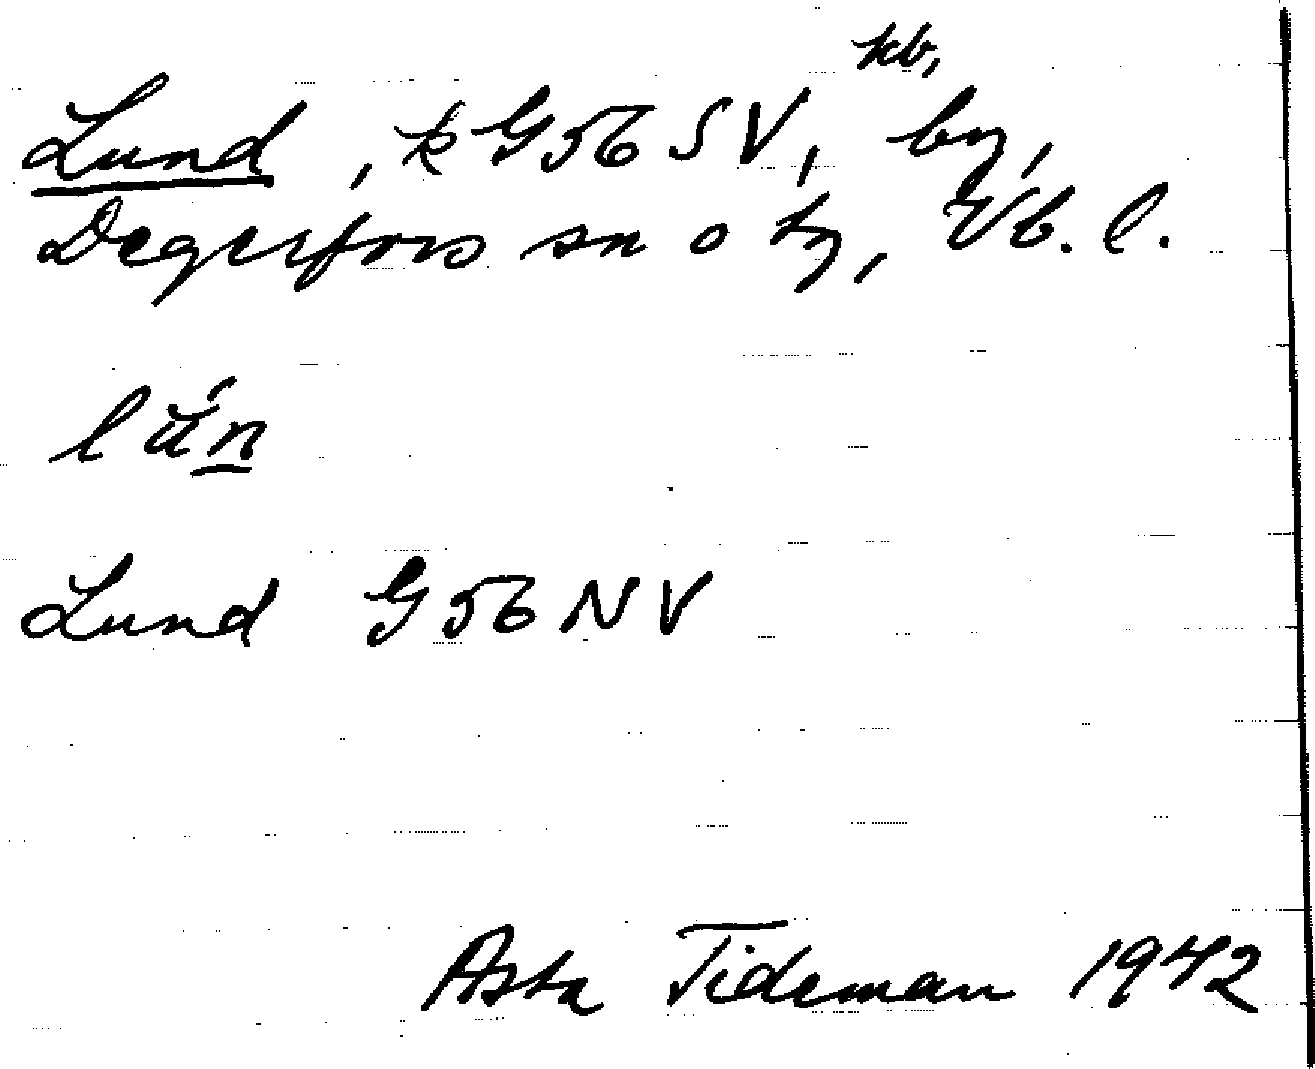 kb,
Lund, k G56 SV, by,
Degerfors sn o tg, Vb. l.
lún
Lund G56 NV
Asta Tideman 1942